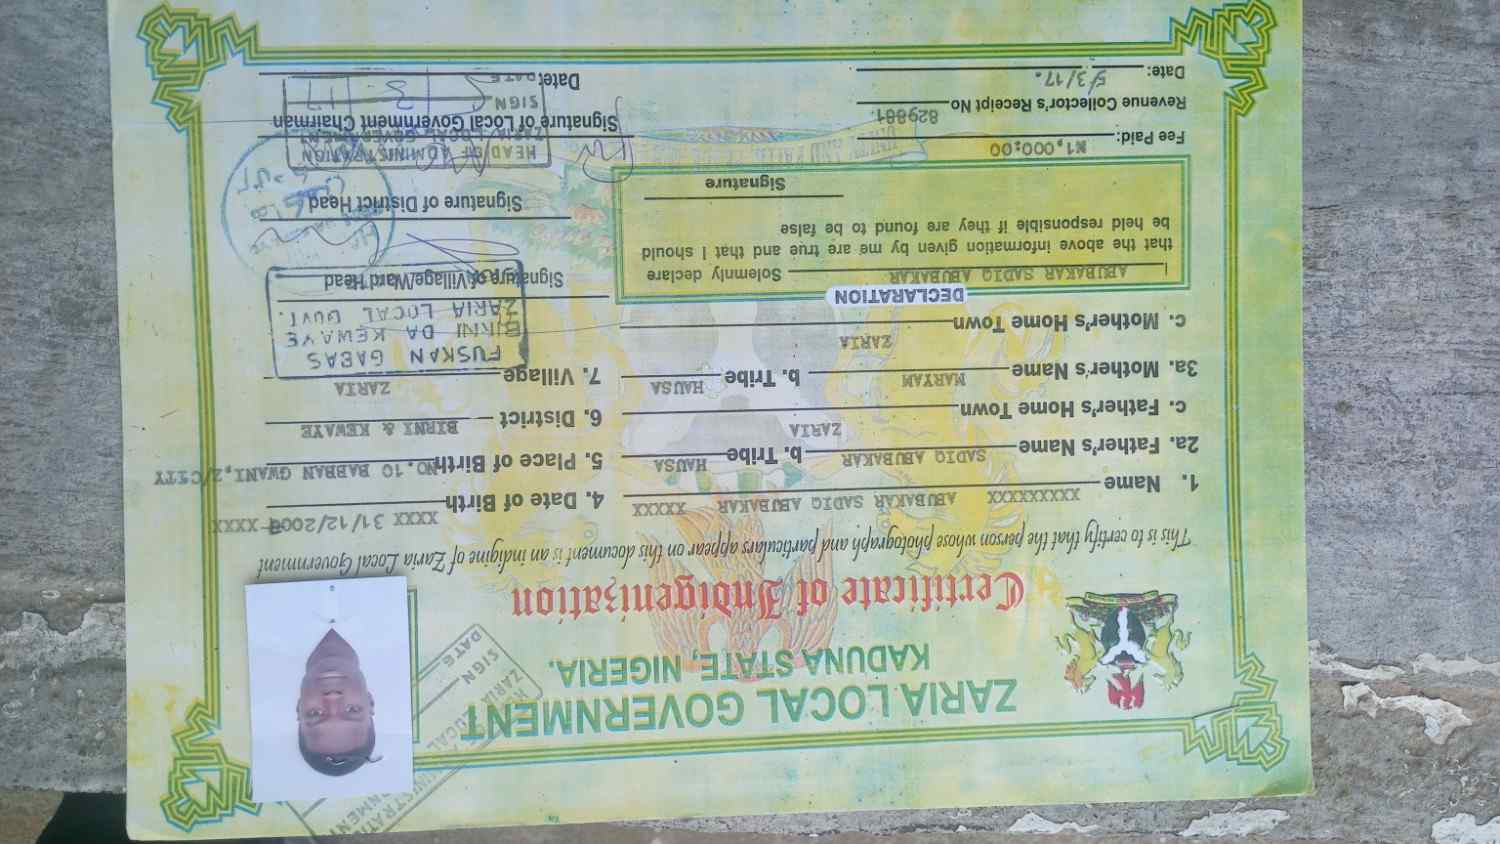 ZARIA LOCAL GOVERNMENT
KADUNA STATE, NIGERIA.
Certificate of Indigenization
This is to certify that the person whose photograph and particulars appear on this document is an indigine of Zaria Local Government
1. Name XXXXXXXXX ABUBAKAR SADIQ ABUBAKAR XXXXX
2a. Father's Name SADIQ ABUBAKAR b. Tribe HAUSA
c. Father's Home Town ZARIA
3a. Mother's Name MARYAM b. Tribe HAUSA
c. Mother's Home Town ZARIA
4. Date of Birth XXXX 31/12/200 XXXX
5. Place of Birth NO.10 BABBAN GWANI,Z/CITY
6. District BIRNI & KEWAYE
7. Village ZARIA
DECLARATION
I ABUBAKAR SADIQ ABUBAKAR Solemnly declare
that the above information given by me are true and that I should
be held responsible if they are found to be false
Signature
Fee Paid: ₦1,000:00
Revenue Collector's Receipt No 829881
Date: 5/3/17.
FUSKAN GABAS
BIRNI DA KEWAYE
ZARIA LOCAL GOVT.
Signature of Village/Ward Head
Signature of District Head
HEAD OF ADMINISTRATION
ZARIA LOCAL GOVERNMENT
Signature of Local Government Chairman
SIGN
DATE
Date:
SIGN
DATE